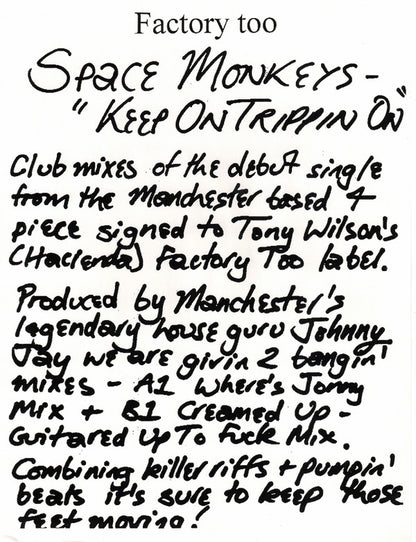 Factory too
SPACE MONKEYS -
"KEEP ON TRIPPIN ON"
Club mixes of the debut single
from the Manchester based 4
piece signed to Tony Wilson's
(Hacienda) Factory Too label.
Produced by Manchester's
legendary house guru Johnny
Jay we are givin 2 bangin'
mixes - A1 Where's Jonny
Mix + B1 Creamed Up -
Guitared Up To Fuck Mix.
Combining killer riffs + pumpin'
beats it's sure to keep those
feet moving!